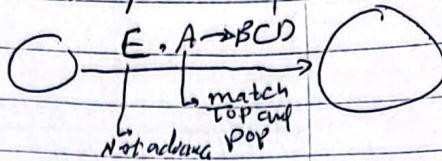 E, A→BCD
match
top and
pop
Not advancing